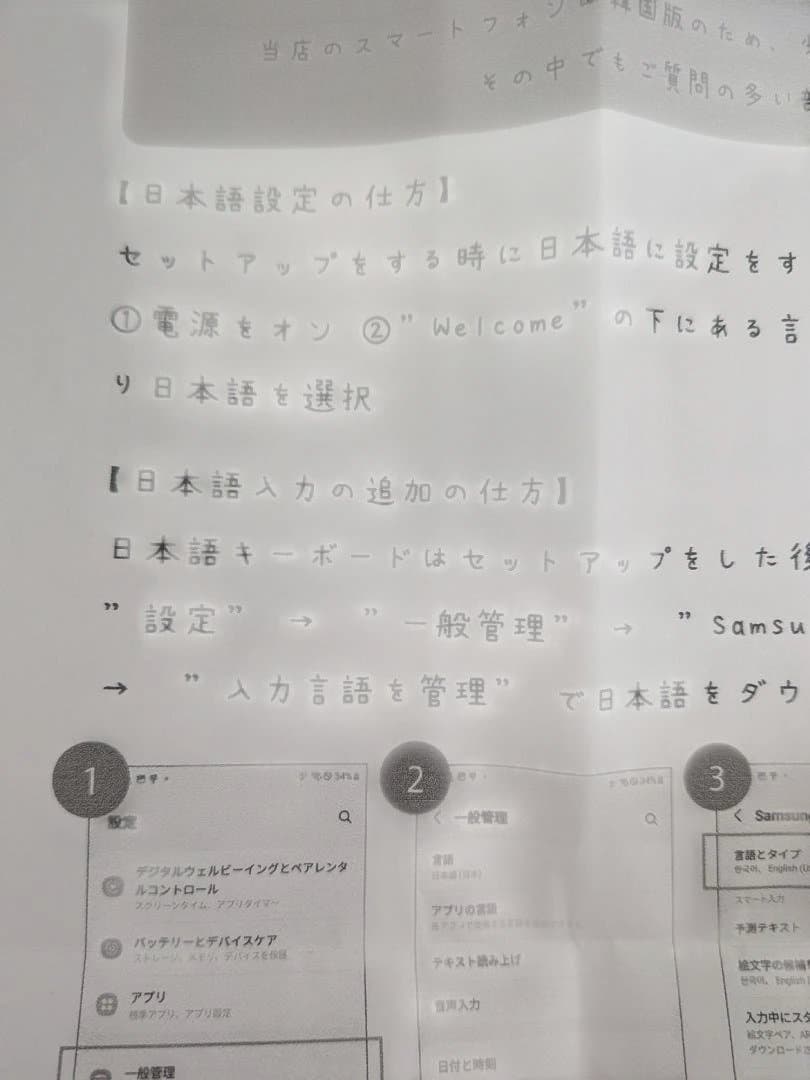 当店のスマートフォンは韓国版のため、
その中でもご質問の多い
【日本語設定の仕方】
セットアップをする時に日本語に設定をす
①電源をオン ②”Welcome”の下にある言
り日本語を選択
【日本語入力の追加の仕方】
日本語キーボードはセットアップをした後
”設定” → ”一般管理” → ”Samsu
→ ”入力言語を管理” で日本語をダウ
1
34%
設定
デジタルウェルビーイングとペアレンタ
ルコントロール
スクリーンタイム、アプリタイマー
バッテリーとデバイスケア
ストレージ、メモリ、デバイスを保護
アプリ
標準アプリ、アプリ設定
一般管理
2
34%
く 一般管理
言語
日本語(日本)
アプリの言語
テキスト読み上げ
音声入力
日付と時刻
3
く Samsung
言語とタイプ
한국어、English (U
スマート入力
予測テキスト
絵文字の候補
한국어、English
入力中にスタ
絵文字ペア、AR
ダウンロードさ